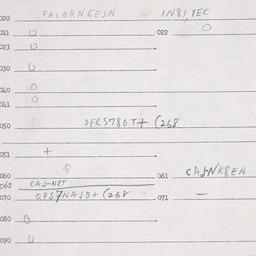 020 FALORNGEJN IN8I,TEC
021 0 022 0
023 0
030 0
040 0
041 0
050 DERS780T+ (268
051 +
$
060 061 CAJNK8EN
062 CAJ-NRT
070 OPS7NAJD+(268 071 -
080 0
090 0